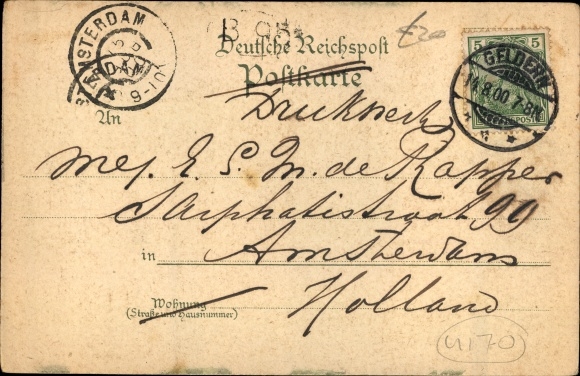 AMSTERDAM
Deutsche Reichspost
Postkarte
5 5
GELDERN
.8.00 7-8
An
Drukwerk
Mej. E. S. M. de Kapper
Sarphatistraat 99
in Amsterdam
Holland
Wohnung
(Straße und Hausnummer)
4170